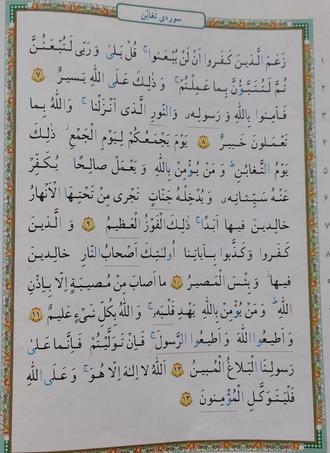 سوره‌ی تغابن
زَعَمَ الَّذينَ كَفَروا اَنْ لَنْ يُبْعَثوا ۚ قُلْ بَلىٰ وَ رَبّى لَتُبْعَثُنَّ
ثُمَّ لَتُنَبَّؤُنَّ بِما عَمِلْتُمْ ۚ وَ ذٰلِكَ عَلَى اللّٰهِ يَسيرٌ ٧
فَـٔامِنوا بِاللّٰهِ وَ رَسولِهٖ وَ النّورِ الَّذى اَنْزَلْنا ۚ وَ اللّٰهُ بِما
تَعْمَلونَ خَبيرٌ ٨ يَوْمَ يَجْمَعُكُمْ لِيَوْمِ الْجَمْعِ ۖ ذٰلِكَ
يَوْمُ التَّغابُنِ ۗ وَ مَنْ يُؤْمِنْ بِاللّٰهِ وَ يَعْمَلْ صالِحًا يُكَفِّرْ
عَنْهُ سَيِّئاتِهٖ وَ يُدْخِلْهُ جَنّاتٍ تَجْرى مِنْ تَحْتِهَا الْاَنْهارُ
خالِدينَ فيها اَبَدًا ۚ ذٰلِكَ الْفَوْزُ الْعَظيمُ ٩ وَ الَّذينَ
كَفَروا وَ كَذَّبوا بِـٔاياتِنا اُولٰئِكَ اَصْحابُ النّارِ خالِدينَ
فيها ۖ وَ بِئْسَ الْمَصيرُ ١٠ ما اَصابَ مِنْ مُصيبَةٍ اِلّا بِاِذْنِ
اللّٰهِ ۗ وَ مَنْ يُؤْمِنْ بِاللّٰهِ يَهْدِ قَلْبَهٗ ۚ وَ اللّٰهُ بِكُلِّ شَىْءٍ عَليمٌ ١١
وَ اَطيعُوا اللّٰهَ وَ اَطيعُوا الرَّسولَ ۚ فَاِنْ تَوَلَّيْتُمْ فَاِنَّما عَلىٰ
رَسولِنَا الْبَلاغُ الْمُبينُ ١٢ اَللّٰهُ لا اِلٰهَ اِلّا هُوَ ۚ وَ عَلَى اللّٰهِ
فَلْيَتَوَكَّلِ الْمُؤْمِنونَ ١٣